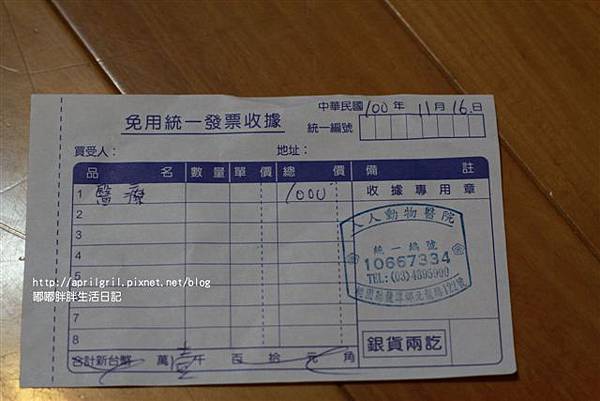 中華民國100年11月16日
免用統一發票收據
統一編號
買受人：
地址：
品名 數量 單價 總價 備註
1 醫療 1000
收據專用章
2
3
人人動物醫院
統一編號
10667334
TEL:(03)4895999
4
5
http://aprilgril.pixnet.net/blog
嘟嘟胖胖生活日記
7
8
銀貨兩訖
合計新台幣 萬壹千百拾元角